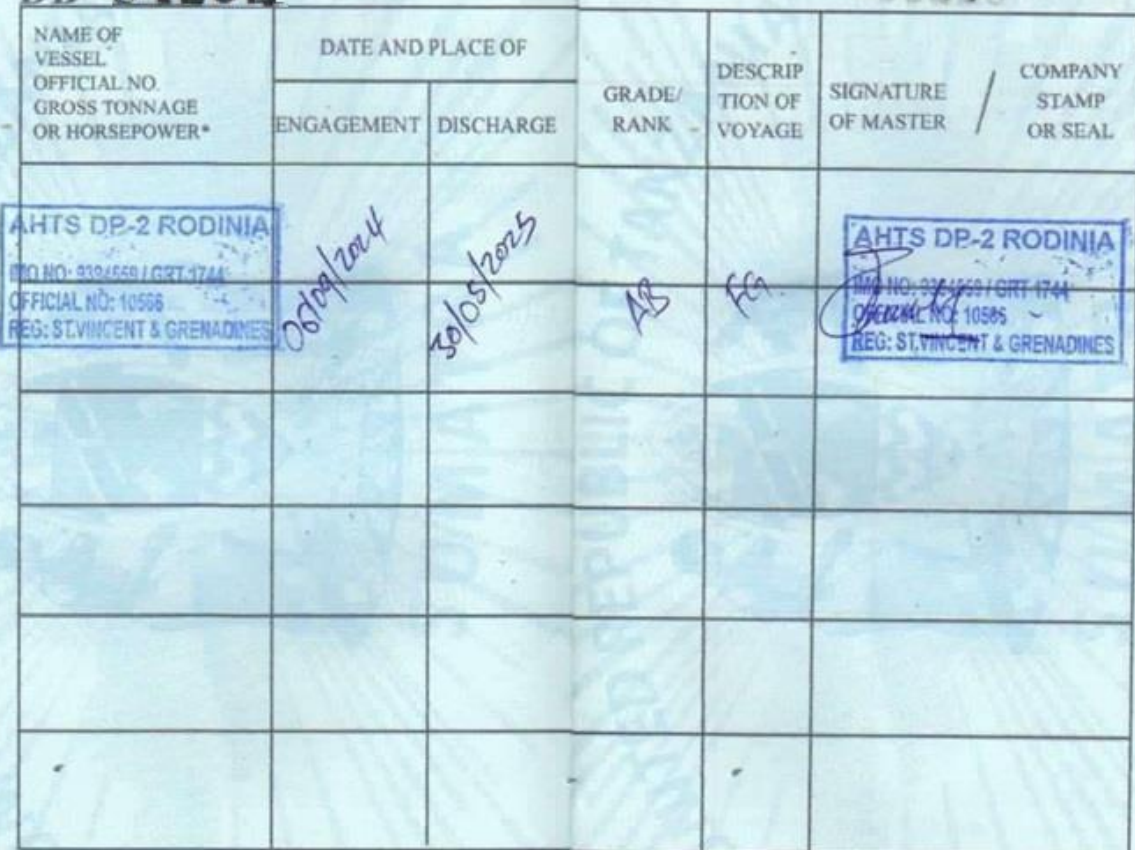 NAME OF
VESSEL
OFFICIAL NO.
GROSS TONNAGE
OR HORSEPOWER*
DATE AND PLACE OF
ENGAGEMENT
DISCHARGE
GRADE/
RANK
DESCRIP
TION OF
VOYAGE
SIGNATURE
OF MASTER
/
COMPANY
STAMP
OR SEAL
AHTS DP-2 RODINIA
IMO NO: 9394559 / GRT 1744
OFFICIAL NO: 10566
REG: ST.VINCENT & GRENADINES
06/09/2024
30/05/2025
AB
FG
AHTS DP-2 RODINIA
IMO NO: / GRT 1744
OFFICIAL NO:
REG: ST.VINCENT & GRENADINES